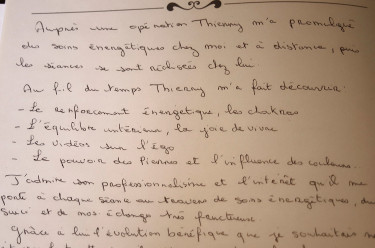 Après une opération Thierray m'a promulgué
des soins énergétiques chez moi et à distance, puis
les séances se sont réalisées chez lui.
Au fil du temps Thierray m'a fait découvrir
- Le renforcement énergétique, les chakras
- L'équilibre intérieur, la joie de vivre
- Les vidéos sur l'égo
- Le pouvoir des Pierres et l'influence des couleurs...
J'admire son professionnalisme et l'intérêt qu'il me
porte à chaque séance au travers de soins énergétiques, du
suivi et de nos échanges très fructueux
Grâce à lui l'évolution bénéfique que je souhaitais